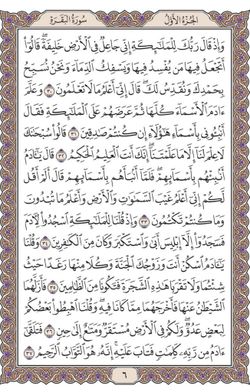 الجزء الأول
سورة البقرة
وَإِذْ قَالَ رَبُّكَ لِلْمَلَٰٓئِكَةِ إِنِّى جَاعِلٌ فِى ٱلْأَرْضِ خَلِيفَةً ۖ قَالُوٓا۟
أَتَجْعَلُ فِيهَا مَن يُفْسِدُ فِيهَا وَيَسْفِكُ ٱلدِّمَآءَ وَنَحْنُ نُسَبِّحُ
بِحَمْدِكَ وَنُقَدِّسُ لَكَ ۖ قَالَ إِنِّىٓ أَعْلَمُ مَا لَا تَعْلَمُونَ ٣٠ وَعَلَّمَ
ءَادَمَ ٱلْأَسْمَآءَ كُلَّهَا ثُمَّ عَرَضَهُمْ عَلَى ٱلْمَلَٰٓئِكَةِ فَقَالَ
أَنۢبِـُٔونِى بِأَسْمَآءِ هَٰٓؤُلَآءِ إِن كُنتُمْ صَٰدِقِينَ ٣١ قَالُوا۟ سُبْحَٰنَكَ
لَا عِلْمَ لَنَآ إِلَّا مَا عَلَّمْتَنَآ ۖ إِنَّكَ أَنتَ ٱلْعَلِيمُ ٱلْحَكِيمُ ٣٢ قَالَ يَٰٓـَٔادَمُ
أَنۢبِئْهُم بِأَسْمَآئِهِمْ ۖ فَلَمَّآ أَنۢبَأَهُم بِأَسْمَآئِهِمْ قَالَ أَلَمْ أَقُل
لَّكُمْ إِنِّىٓ أَعْلَمُ غَيْبَ ٱلسَّمَٰوَٰتِ وَٱلْأَرْضِ وَأَعْلَمُ مَا تُبْدُونَ
وَمَا كُنتُمْ تَكْتُمُونَ ٣٣ وَإِذْ قُلْنَا لِلْمَلَٰٓئِكَةِ ٱسْجُدُوا۟ لِـَٔادَمَ
فَسَجَدُوٓا۟ إِلَّآ إِبْلِيسَ أَبَىٰ وَٱسْتَكْبَرَ وَكَانَ مِنَ ٱلْكَٰفِرِينَ ٣٤ وَقُلْنَا
يَٰٓـَٔادَمُ ٱسْكُنْ أَنتَ وَزَوْجُكَ ٱلْجَنَّةَ وَكُلَا مِنْهَا رَغَدًا حَيْثُ
شِئْتُمَا وَلَا تَقْرَبَا هَٰذِهِ ٱلشَّجَرَةَ فَتَكُونَا مِنَ ٱلظَّٰلِمِينَ ٣٥ فَأَزَلَّهُمَا
ٱلشَّيْطَٰنُ عَنْهَا فَأَخْرَجَهُمَا مِمَّا كَانَا فِيهِ ۖ وَقُلْنَا ٱهْبِطُوا۟ بَعْضُكُمْ
لِبَعْضٍ عَدُوٌّ ۖ وَلَكُمْ فِى ٱلْأَرْضِ مُسْتَقَرٌّ وَمَتَٰعٌ إِلَىٰ حِينٍ ٣٦ فَتَلَقَّىٰٓ
ءَادَمُ مِن رَّبِّهِۦ كَلِمَٰتٍ فَتَابَ عَلَيْهِ ۚ إِنَّهُۥ هُوَ ٱلتَّوَّابُ ٱلرَّحِيمُ ٣٧
٦